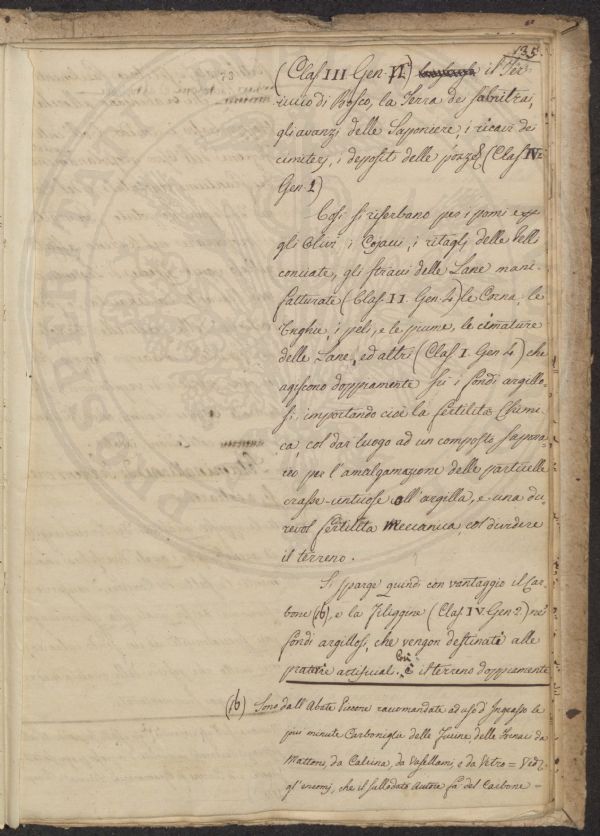 135.
(Clas. III Gen. II.) il Ter-
riccio di Bosco, la Terra dei salnitrai,
gli avanzi delle Saponiere, i ricavi dei
cimiterj, i depositi delle pozze (Clas. IV.
Gen. 1)
Così si riserbano per i pomi e per
gli Olivi, i Cojacci, i ritaglj delle Pelli
conciate, gli stracci delle Lane mani-
fatturate (Clas. II. Gen. 4) le Corna, le
Unghie, i peli, e le piume, le cimature
delle Lane, ed altri (Clas. I. Gen. 4) che
agiscono doppiamente su i fondi argillo-
si, importando cioè la fertilità Chimi-
ca, col dar luogo ad un composto sapona-
ceo per l'amalgamazione delle particelle
crasse-untuose all'argilla, e una du-
revol fertilità Meccanica, col dividere
il terreno.
Si sparge quindi con vantaggio il Car-
bone (16), e la Filiggine (Clas. IV. Gen. 2.) nei
fondi argillosi, che vengon destinati alle
praterie artificiali. il terreno doppiamente
(16) Sono dall'Abate raccomandate ad uso d'Ingrasso le
più minute Carboniglie delle Fucine, delle Fornaci da
Mattoni, da Calcina, da Vasellami, e da Vetro = Ved.
gl'encomj, che il sullodato Autore fa del Carbone =